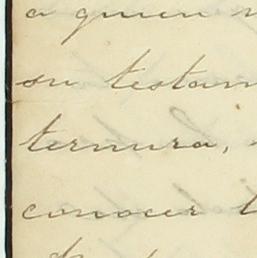 a quien
su testam
ternura,
conocer